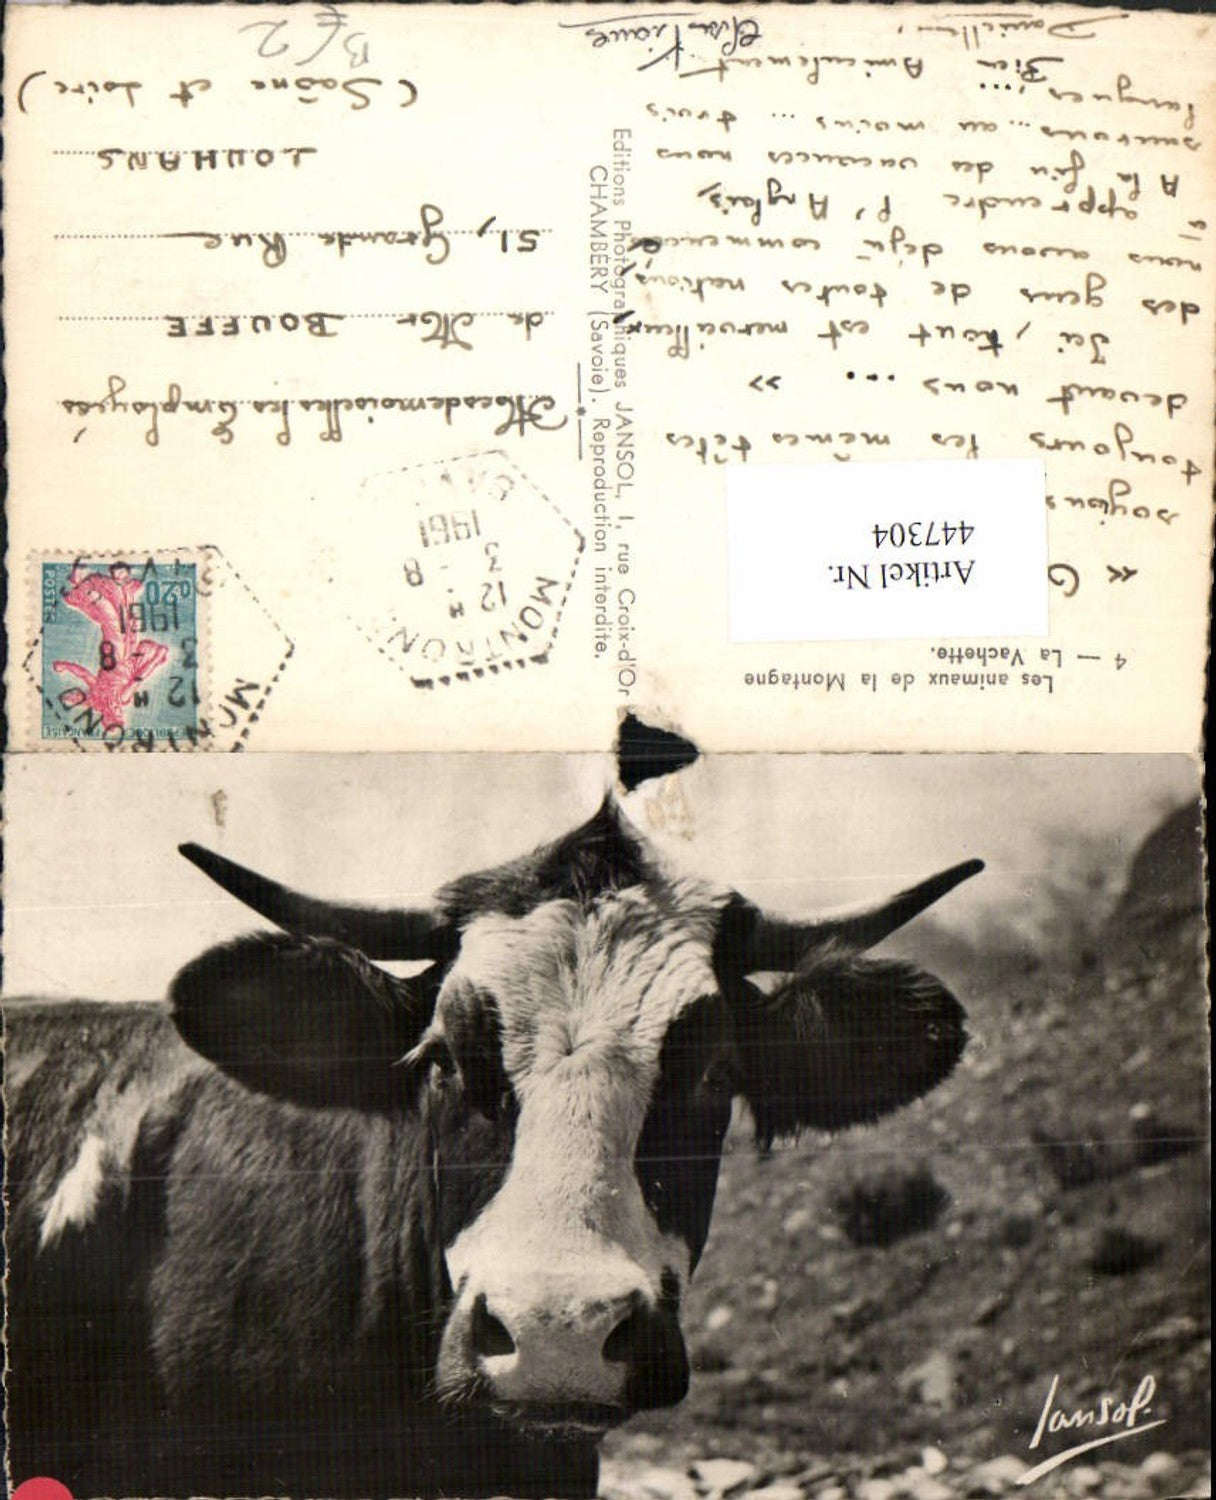 Les animaux de la Montagne
4 — La Vachette.
Artikel Nr.
447304
«
toujours les mêmes têtes
devant nous ... »
Ici, tout est merveilleux
des gens de toutes nations,
nous avons déjà commencé
à apprendre l'Anglais,
A la fin des vacances nous
saurons... au moins... trois
langues...
Bien Amicalement
Danielle
Editions Photographiques JANSOL, 1, rue Croix-d'Or
CHAMBÉRY (Savoie). Reproduction interdite.
RÉPUBLIQUE FRANÇAISE
0,20
POSTES
MONTROND
12 H
3 - 8
1961
SAVOIE
MONTROND
12 H
3 - 8
1961
SAVOIE
Mesdemoiselles les Employées
de Mr BOUFFE
51, Grande Rue
LOUHANS
(Saône et Loire)
Jansol.